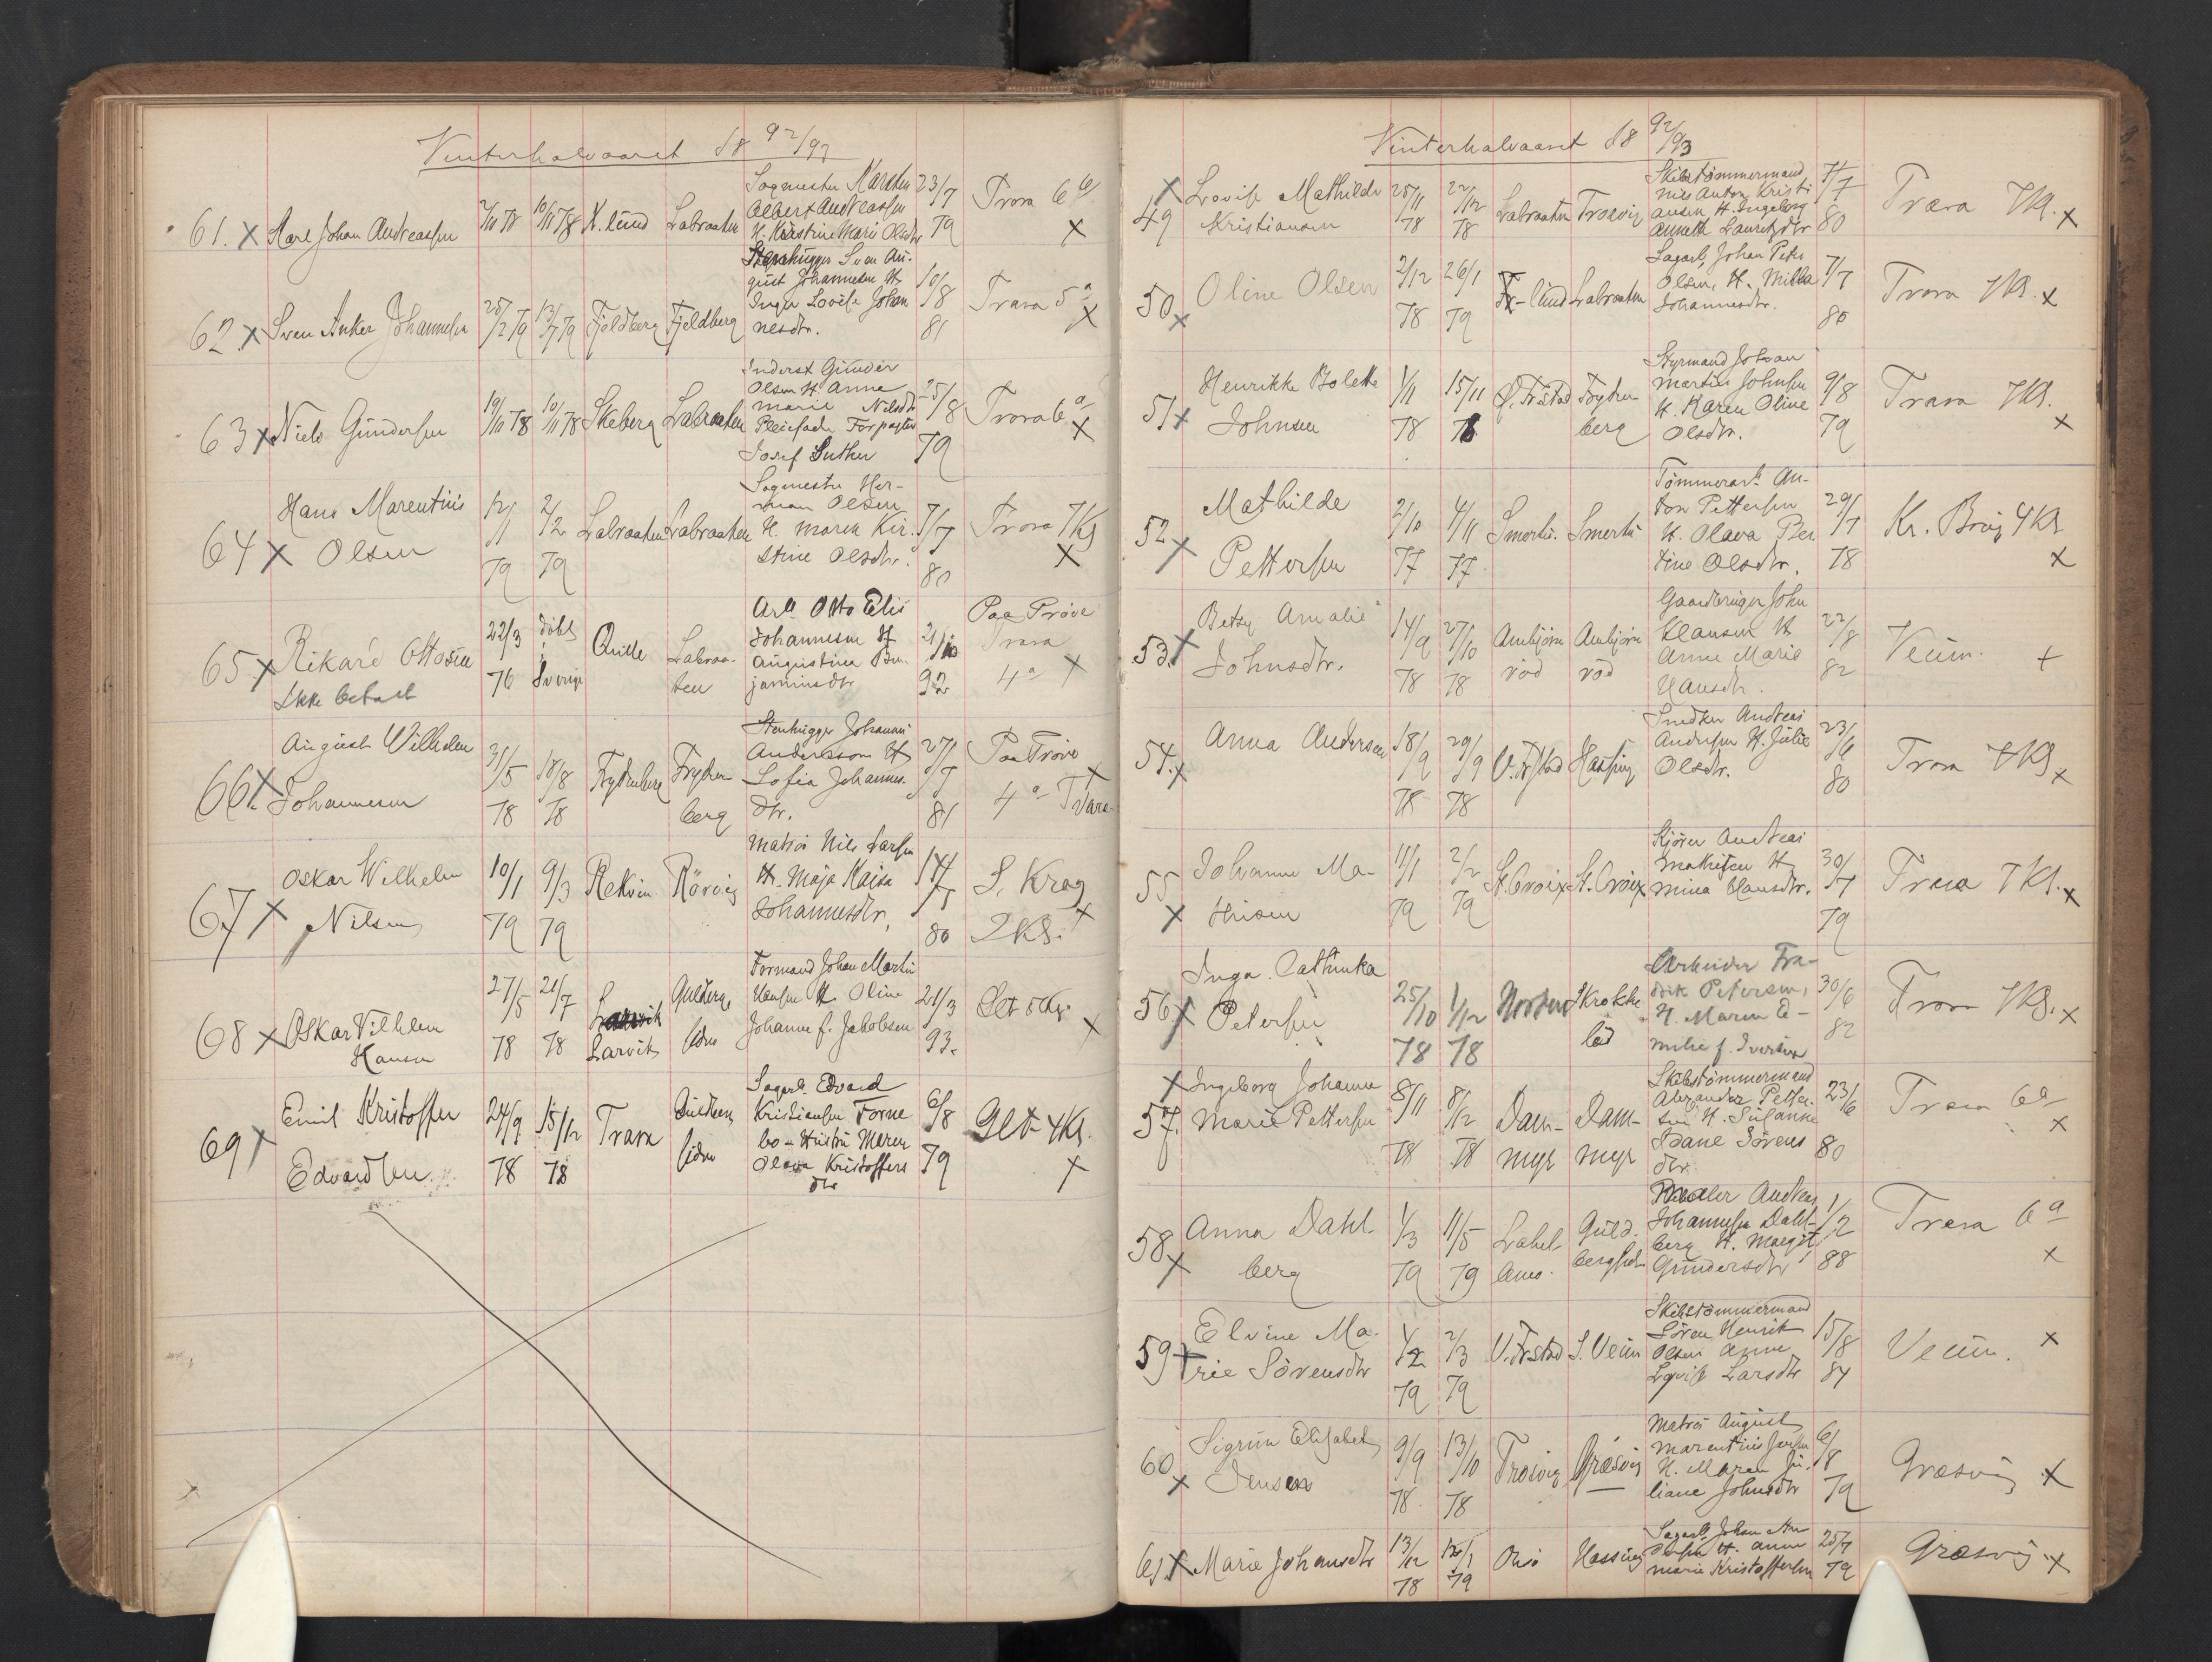 Vinterhalvaaret 18 92/93
61. X Karl Johan Andreassen 2/10 78 10/11 78 K.lund Labraaten Sagmester Martin
Albert Andreassen
H. Kristine Marie Olsdtr 23/7 79 Trara 6a X
62. X Sven Anker Johannesen 25/2 79 13/7 79 Fjeldberg Fjeldberg Stenhugger Sven Au-
gust Johannesen H.
Inga Lovise Johan
nesdtr. 10/8 81 Trara 5a X
63 X Niels Gundersen 19/10 78 10/11 78 Skeberg Labraaten Inderst Gunder
Olsen H. Anne
Marie Nilsdtr
Pleiefader Forpagter
Josef Luther 25/8 79 Trara 6a X
64 X Hans Marentius
Olsen 12/1 79 2/2 79 Labraaten Labraaten Sagmester Her-
man Olsen
H. Maren Kir-
stine Olsdtr. 7/7 80 Trara 7Kl X
65 X Rikard Ottosen
Ikke betalt 22/3 76 döbt i Sverige Quille Labraa-
ten Arb. Otto Elis
Johannesen H.
Augustina Ben-
jaminsdtr 21/10 92 Paa Prøve
Trara
4a X
66. X August Wilhelm
Johannesen 31/5 78 18/8 78 Frydenberg Fryden-
berg Stenhugger Johannes
Andersson H.
Sofia Johannes-
dtr. 27/7 81 Paa Prøve
4a Trara X
67 X Oskar Wilhelm
Nilsen 10/1 79 9/3 79 Rekvin Rörvig Matros Nils Larsen
H. Maja Kaisa
Johannesdtr. 14/5 80 S. Krag
2Kl. X
68 X Oskar Vilhelm
Hansen 27/5 78 21/7 78 Larvik Guldbergs
siden Formand Johan Martin
Hansen H. Oline
Johanne f. Jakobsen 21/3 93. Glb 5Kl. X
69 X Emil Kristoffer
Edvardsen 24/9 78 15/12 78 Trara Guldbergs
siden Sagarb. Edvard
Kristiansen Torne
bo - Hustru Maren
Olava Kristoffers
dtr 6/8 79 Glb 4Kl. X
Vinterhalvaaret 18 92/93
49 X Lovise Mathilde
Kristiansen 25/11 78 22/12 78 Labraaten Trosvig Skibstömmermand
Nils Anton Kristi
ansen H. Ingeborg
Annette Lauritzdtr 7/7 80 Trara 7Kl. X
50 X Oline Olsen 2/12 78 26/1 79 K-lund Labraaten Sagarb. Johan Peter
Olsen, H. Milla
Johannesdtr. 7/7 80 Trara 7Kl. X
51 X Henrikke Bolette
Johnsen 1/11 78 15/11 78 Ø. Frstad Fryden-
berg Styrmand Johan
Martin Johnsen
H. Karen Oline
Olsdtr. 9/8 79 Trara 7Kl. X
52 X Mathilde
Pettersen 2/10 77 4/11 77 Smertu. Smertu Tömmerarb. An-
ton Pettersen
H. Olava Ber
tine Olsdtr. 29/7 78 Kr. Brovig 4Kl X
53. X Betsy Amalie
Johnsdtr. 14/9 78 27/10 78 Ambjörn
röd Ambjörn
röd Gaardbruger John
Klausen H.
Anne Marie
Hansdtr. 22/8 82 Veum. X
54. X Anna Andersen 18/9 78 29/9 78 V. Frstad Hassing Snedker Andreas
Andersen H. Julie
Olsdtr. 23/6 80 Trara 7Kl. X
55 X Johanne Ma-
thisen 11/1 79 2/2 79 St. Croix St. Croix Kjörer Andreas
Mathisen H.
Mina Clausdtr. 30/7 79 Trara 7Kl. X
56 X Inga Cathinka
Petersen 25/10 78 1/12 78 Norberg Krokke
löd Arbeider Fre-
drik Petersen,
H. Maren E-
milie f. Iversen 30/6 82 Trara 7Kl. X
57. X Ingeborg Johanne
Marie Pettersen 8/11 78 8/12 78 Dam-
myr Dam-
myr Skibstömmermand
Alexander Petter
sen H. Susanne
Isane Sörens
dtr. 23/6 80 Trara 6a X
58 X Anna Dahl-
berg 1/3 79 11/5 79 Lahel Guld-
bergsiden Maler Andreas
Johannesen Dahl-
berg H. Margit
Gundersdtr 1/2 88 Trara 6a X
59 X Elvine Ma-
rie Sörensdtr 1/2 79 2/3 79 V. Frstad S. Veum Skibstömmermand
Sören Henrik
Olsen Anne
Lovise Larsdtr 15/8 84 Veum. X
60 X Sigrun Elisabet
Jensen 9/9 78 13/10 78 Trosvig Græsvig Matros August
Marentius Jensen
H. Maren Ju-
liane Johnsdtr 6/8 79 Græsvig X
61. X Marie Johansdtr 13/12 78 12/1 79 Onsö Hassing Sagarb. Johan An
dersen H. Anne
Marie Kristoffersen 25/7 79 Græsvig. X